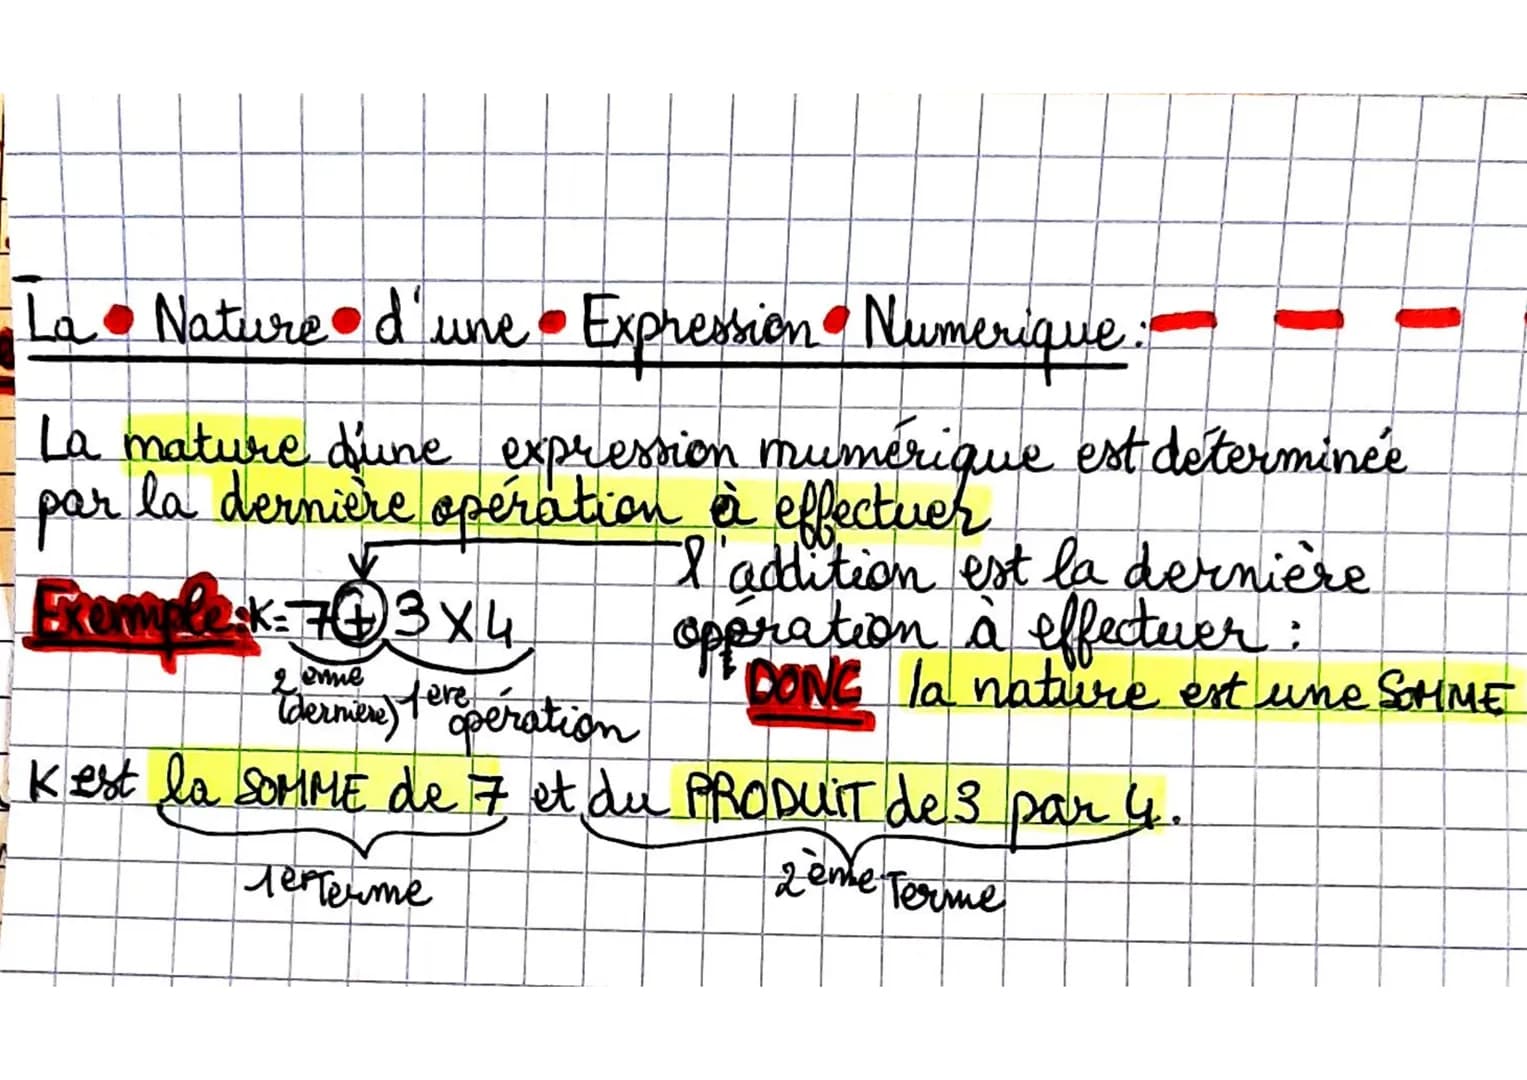 La • Nature • d'une • Expression • Numerique :
La nature d'une expression numérique est déterminée
par la dernière opération à effectuer
l'addition est la dernière
Exemple: K = 7 + 3 x 4
opération à effectuer :
2ème
(dernière)
1ère
opération
DONC la nature est une SOMME
K est la SOMME de 7 et du PRODUIT de 3 par 4.
1er Terme
2ème Terme